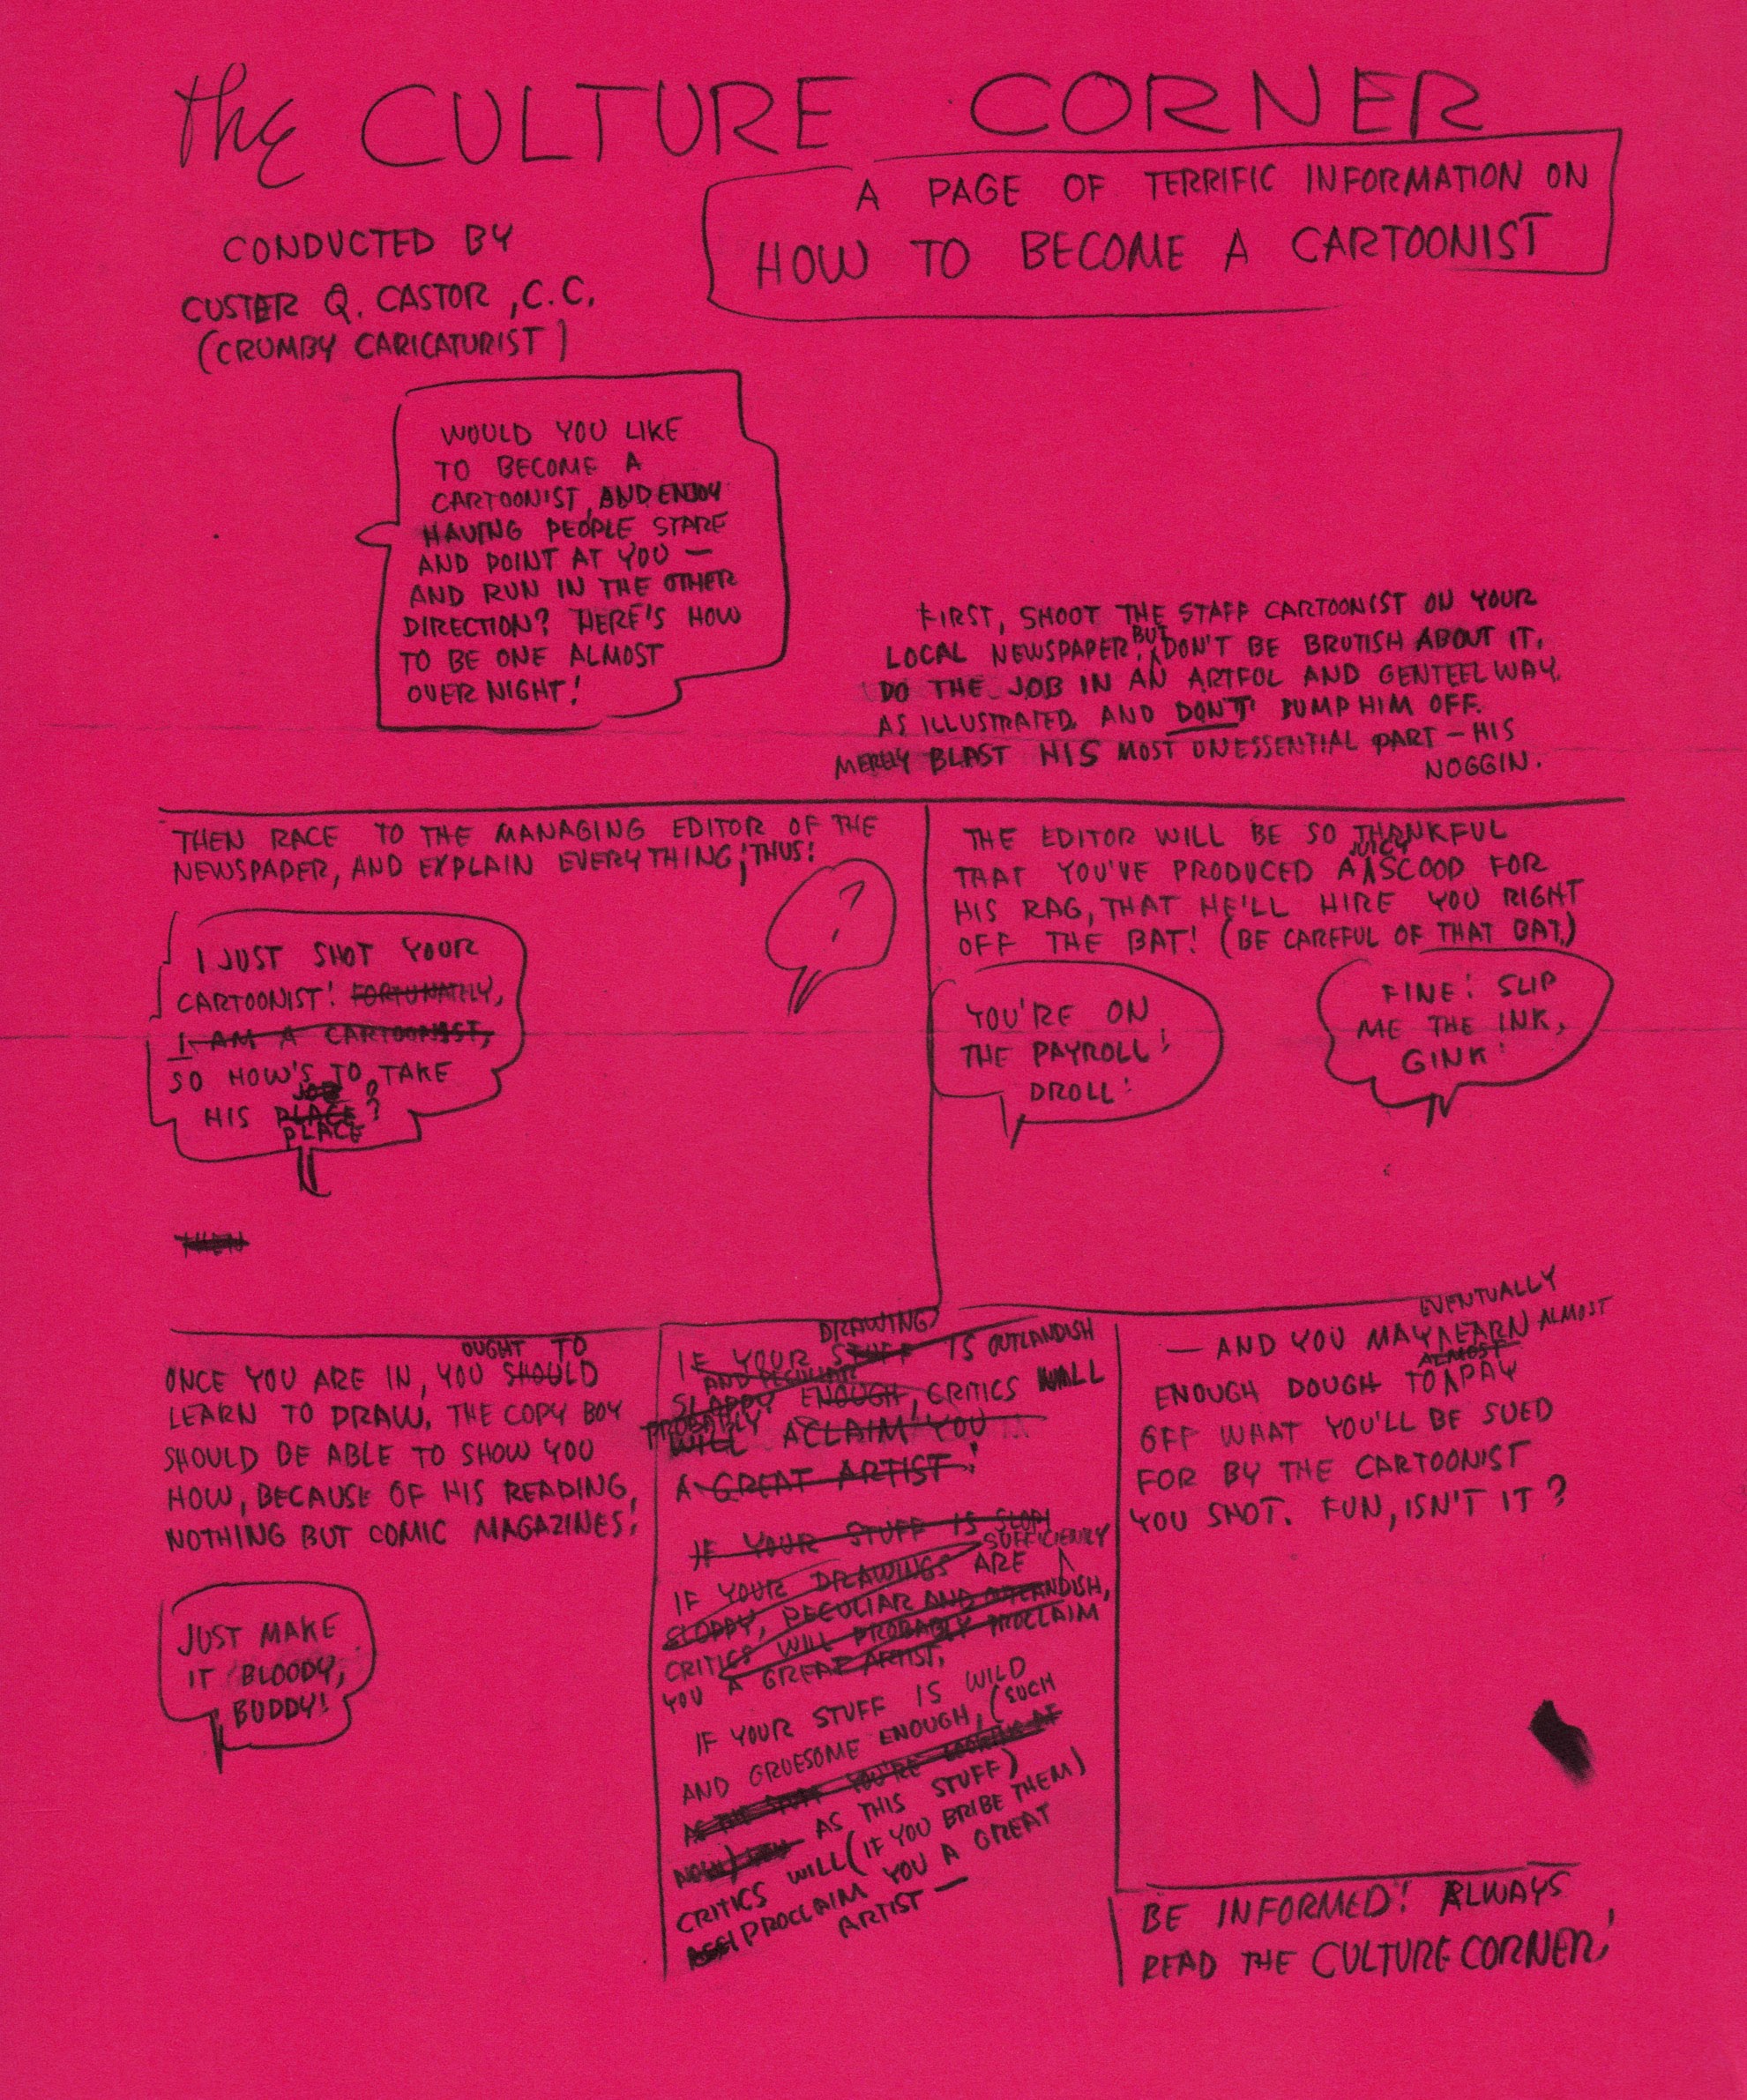 the CULTURE CORNER
A PAGE OF TERRIFIC INFORMATION ON
HOW TO BECOME A CARTOONIST
CONDUCTED BY
CUSTER Q. CASTOR, C.C.
(CRUMBY CARICATURIST)
WOULD YOU LIKE
TO BECOME A
CARTOONIST, AND ENJOY
HAVING PEOPLE STARE
AND POINT AT YOU —
AND RUN IN THE OTHER
DIRECTION? HERE'S HOW
TO BE ONE ALMOST
OVER NIGHT!
FIRST, SHOOT THE STAFF CARTOONIST ON YOUR
LOCAL NEWSPAPER. BUT DON'T BE BRUTISH ABOUT IT.
DO THE JOB IN AN ARTFUL AND GENTEEL WAY,
AS ILLUSTRATED, AND DON'T BUMP HIM OFF.
MERELY BLAST HIS MOST UNESSENTIAL PART — HIS
NOGGIN.
THEN RACE TO THE MANAGING EDITOR OF THE
NEWSPAPER, AND EXPLAIN EVERYTHING, THUS!
?
!
I JUST SHOT YOUR
CARTOONIST! FORTUNATELY,
I AM A CARTOONIST,
SO HOW'S TO TAKE
JOB
HIS PLACE?
PLACE
THEN
THE EDITOR WILL BE SO THANKFUL
THAT YOU'VE PRODUCED A JUICY SCOOP FOR
HIS RAG, THAT HE'LL HIRE YOU RIGHT
OFF THE BAT! (BE CAREFUL OF THAT BAT.)
YOU'RE ON
THE PAYROLL!
DROLL!
FINE! SLIP
ME THE INK,
GINK!
OUGHT TO
ONCE YOU ARE IN, YOU SHOULD
LEARN TO DRAW. THE COPY BOY
SHOULD BE ABLE TO SHOW YOU
HOW, BECAUSE OF HIS READING,
NOTHING BUT COMIC MAGAZINES!
JUST MAKE
IT BLOODY,
BUDDY!
DRAWING
IF YOUR STUFF IS OUTLANDISH
AND PECULIAR
SLOPPY ENOUGH, CRITICS WILL
PROBABLY
WILL ACLAIM YOU
A GREAT ARTIST!
IF YOUR STUFF IS SLOP
SUFFICIENTLY
IF YOUR DRAWINGS ARE
SLOPPY, PECULIAR AND OUTLANDISH,
CRITICS WILL PROBABLY PROCLAIM
YOU A GREAT ARTIST.
IF YOUR STUFF IS WILD
AND GRUESOME ENOUGH, (SUCH
AS THE STUFF YOU'RE LOOKING AT
NOW) AS THIS STUFF)
CRITICS WILL (IF YOU BRIBE THEM)
PROCLAIM YOU A GREAT
ARTIST —
EVENTUALLY
— AND YOU MAY EARN ALMOST
ALMOST
ENOUGH DOUGH TO PAY
OFF WHAT YOU'LL BE SUED
FOR BY THE CARTOONIST
YOU SHOT. FUN, ISN'T IT?
BE INFORMED! ALWAYS
READ THE CULTURE CORNER!